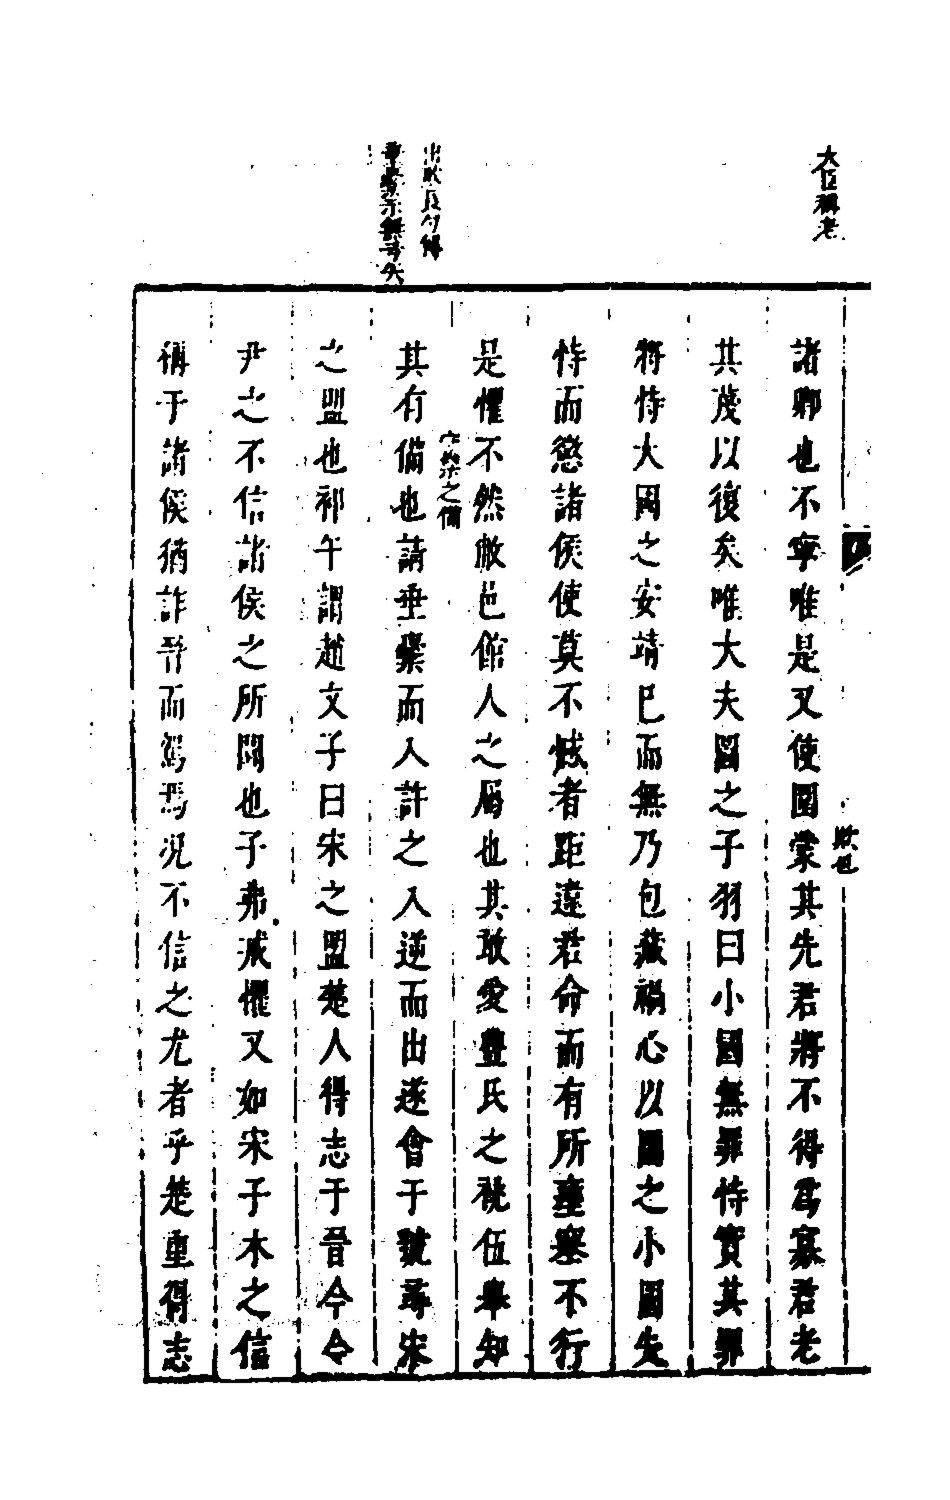 大臣稱老
欺也
諸卿也不寧唯是又使圍蒙其先君將不得爲寡君老
其蔑以復矣唯大夫圖之子羽曰小國無罪恃實其罪
將恃大國之安靖已而無乃包藏禍心以圖之小國失
恃而懲諸侯使莫不憾者距違君命而有所壅塞不行
是懼不然敝邑館人之屬也其敢愛豐氏之祧伍舉知
其有備也請垂櫜而入許之入逆而出遂會于虢尋宋
之盟也祁午謂趙文子曰宋之盟楚人得志于晉今令
尹之不信諸侯之所聞也子弗戒懼又如宋子木之信
稱于諸侯猶詐晉而駕焉况不信之尤者乎楚重得志